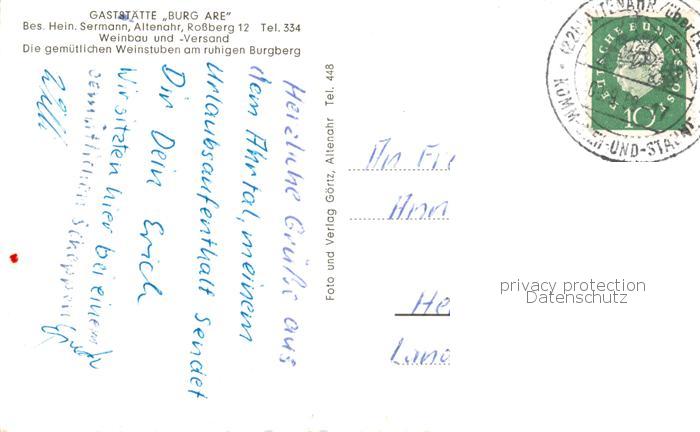 GASTSTÄTTE „BURG ARE"
Bes. Hein. Sermann, Altenahr, Roßberg 12 Tel. 334
Weinbau und -Versand
Die gemütlichen Weinstuben am ruhigen Burgberg
Herzliche Grüße aus
dem Ahrtal, meinem
Urlaubsaufenthalt sendet
Dir Dein Erich
Wir sitzten hier bei einem
gemütlichen Schoppen
Willi
Foto und Verlag Görtz, Altenahr Tel. 448
An Fr
Ann
He
Land
ALTENAHR
KOMM UND STAUNE
DEUTSCHE BUNDESPOST
10
privacy protection
Datenschutz